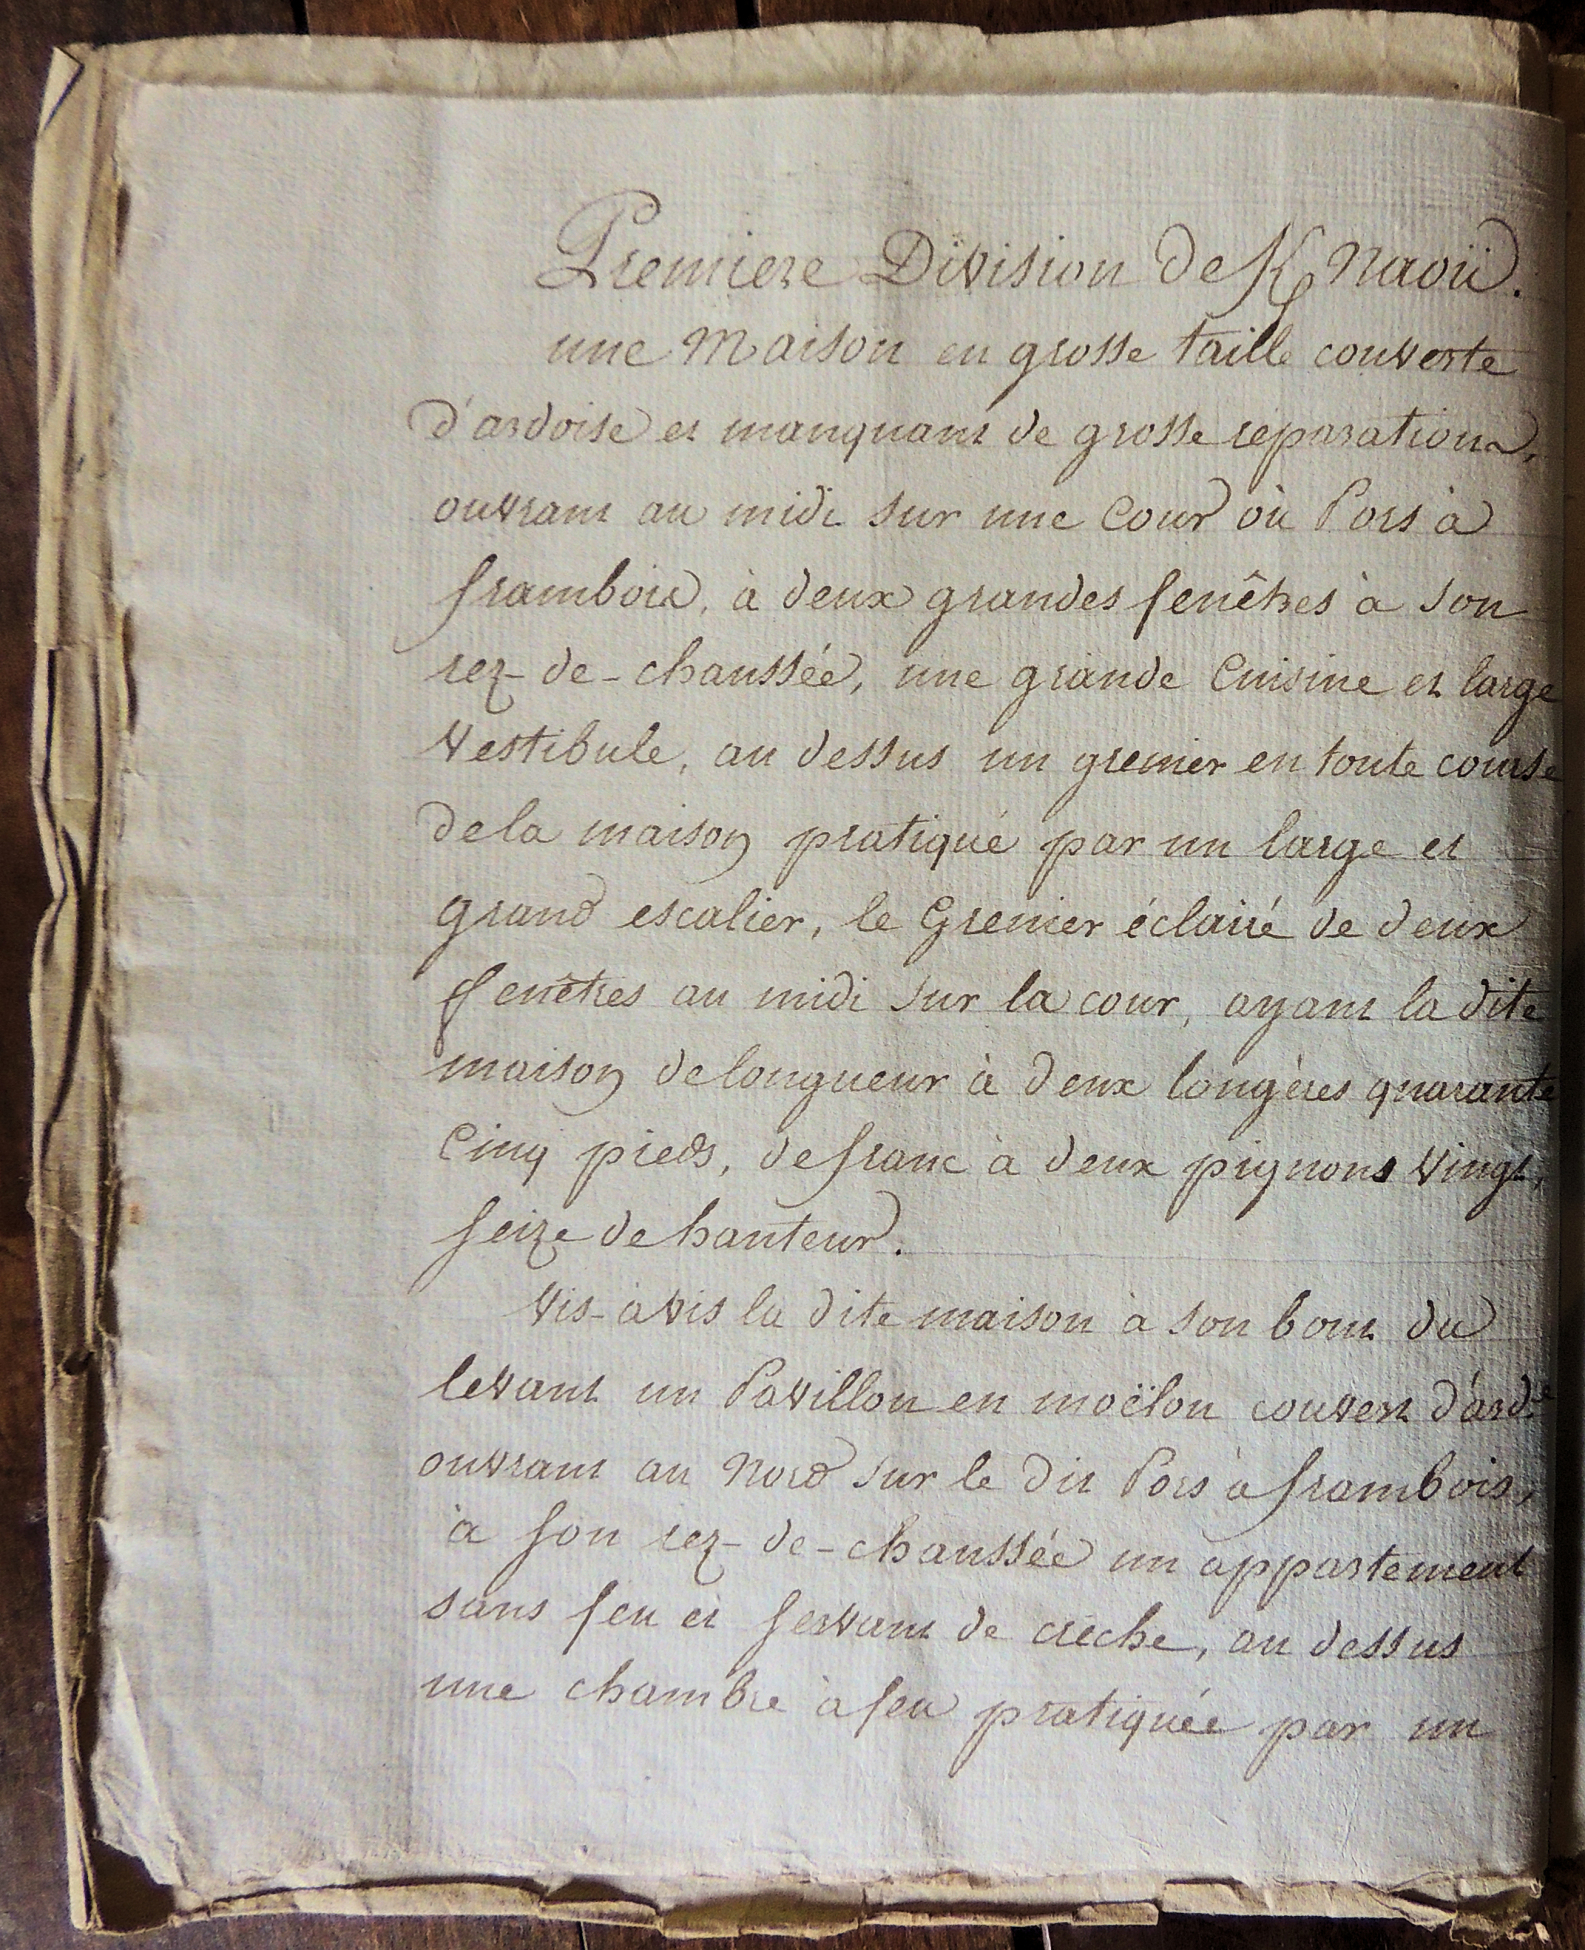 Premiere Division de K/ Naoü.
une Maison en grosse taille couverte
d'ardoise et manquant de grosse reparations,
ouvrant au midi sur une Cour où Pors à
frambois, à deux grandes fenêtres à son
rez-de-chaussée, une grande Cuisine et large
Vestibule, au dessus un grenier en toute course
de la maison pratiqué par un large et
grand escalier, le Grenier éclairé de deux
fenêtres au midi sur la cour, ayant la dite
maison de longueur à deux longères quarante
Cinq pieds, de franc à deux pignons Vingt,
seize de hauteur.
Vis-avis la dite maison à son bout du
levant un Pavillon en moëlon couvert d'arde
ouvrant au Nord sur le dit Pors à frambois,
à son rez-de-chaussée un appartement
sans feu et servant de creche, au dessus
une chambre à feu pratiquée par un